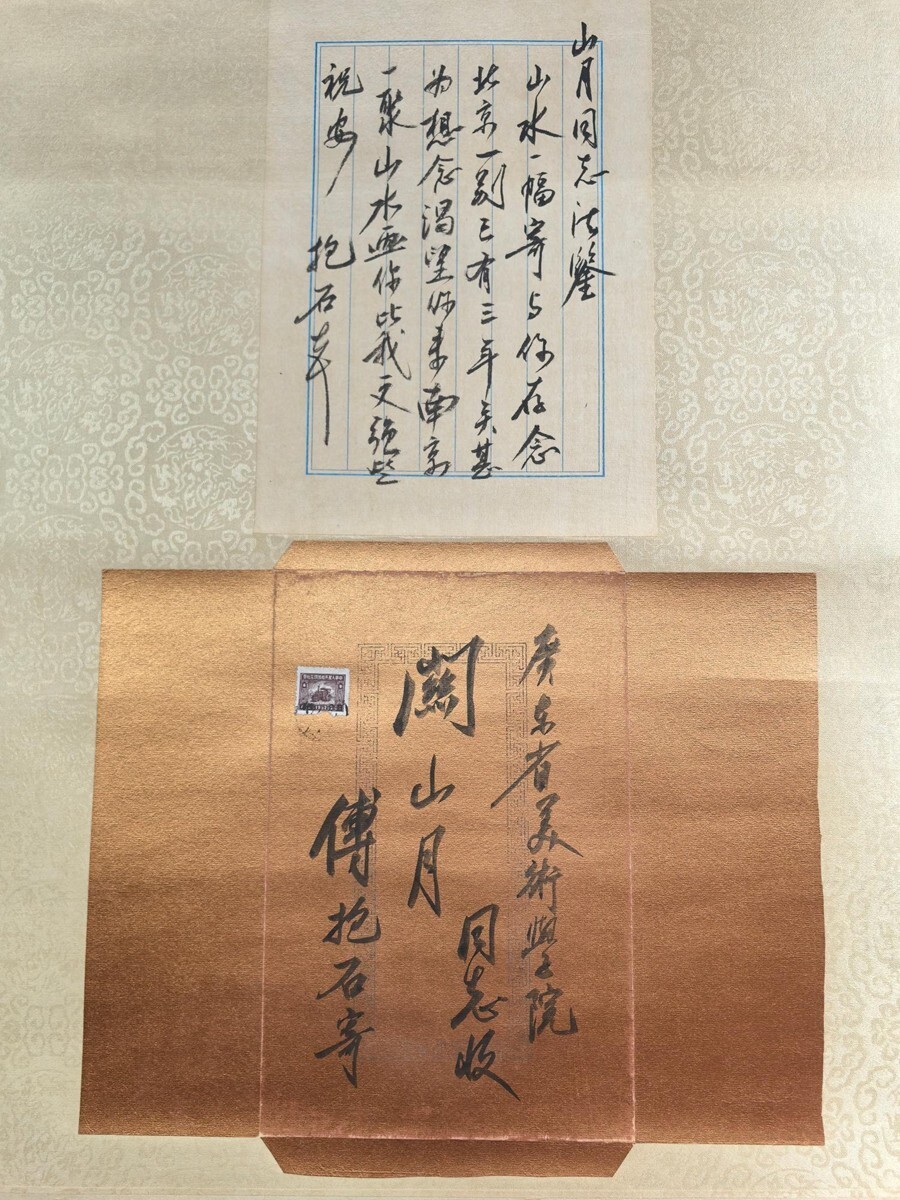 山月同志法鑒
山水一幅寄与你存念
北京一别已有三年矣甚
为想念渴望你来南京
一聚山水画你比我文強些
祝安
抱石奉
廣东省美術學院
關山月
同志收
傅抱石寄